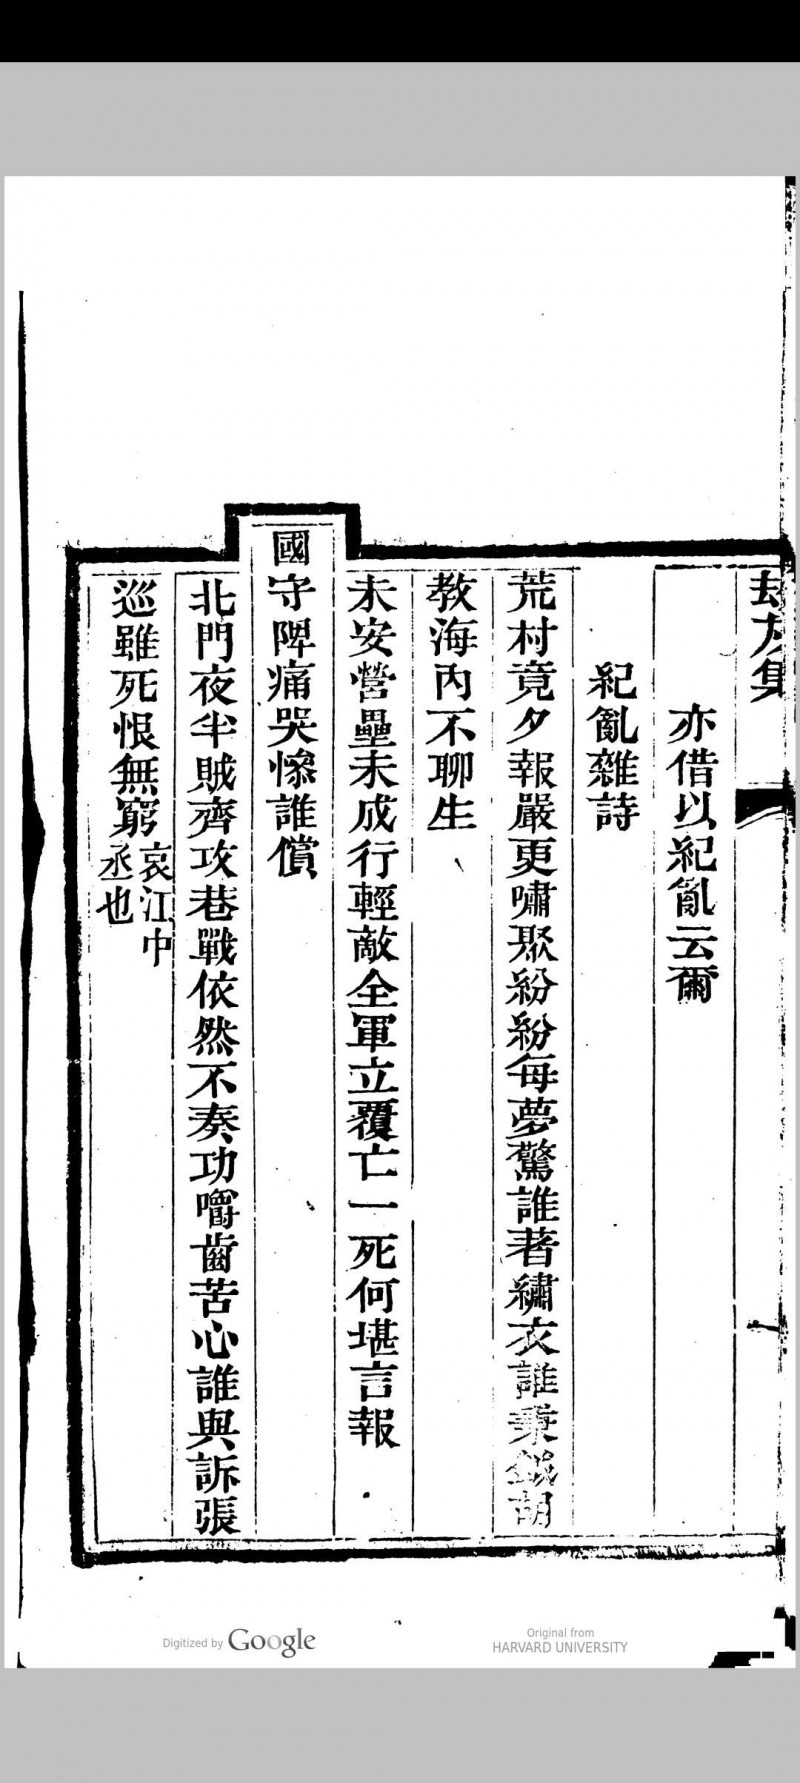 劫灰集
亦借以紀亂云爾
紀亂雜詩
荒村竟夕報嚴更嘯聚紛紛每夢驚誰著繡衣誰秉鉞胡
教海內不聊生
未安營壘未成行輕敵全軍立覆亡一死何堪言報
國守陴痛哭慘誰償
北門夜半賊齊攻巷戰依然不奏功嚼齒苦心誰與訴張
巡雖死恨無窮哀江中
丞也
Digitized by Google
Original from
HARVARD UNIVERSITY